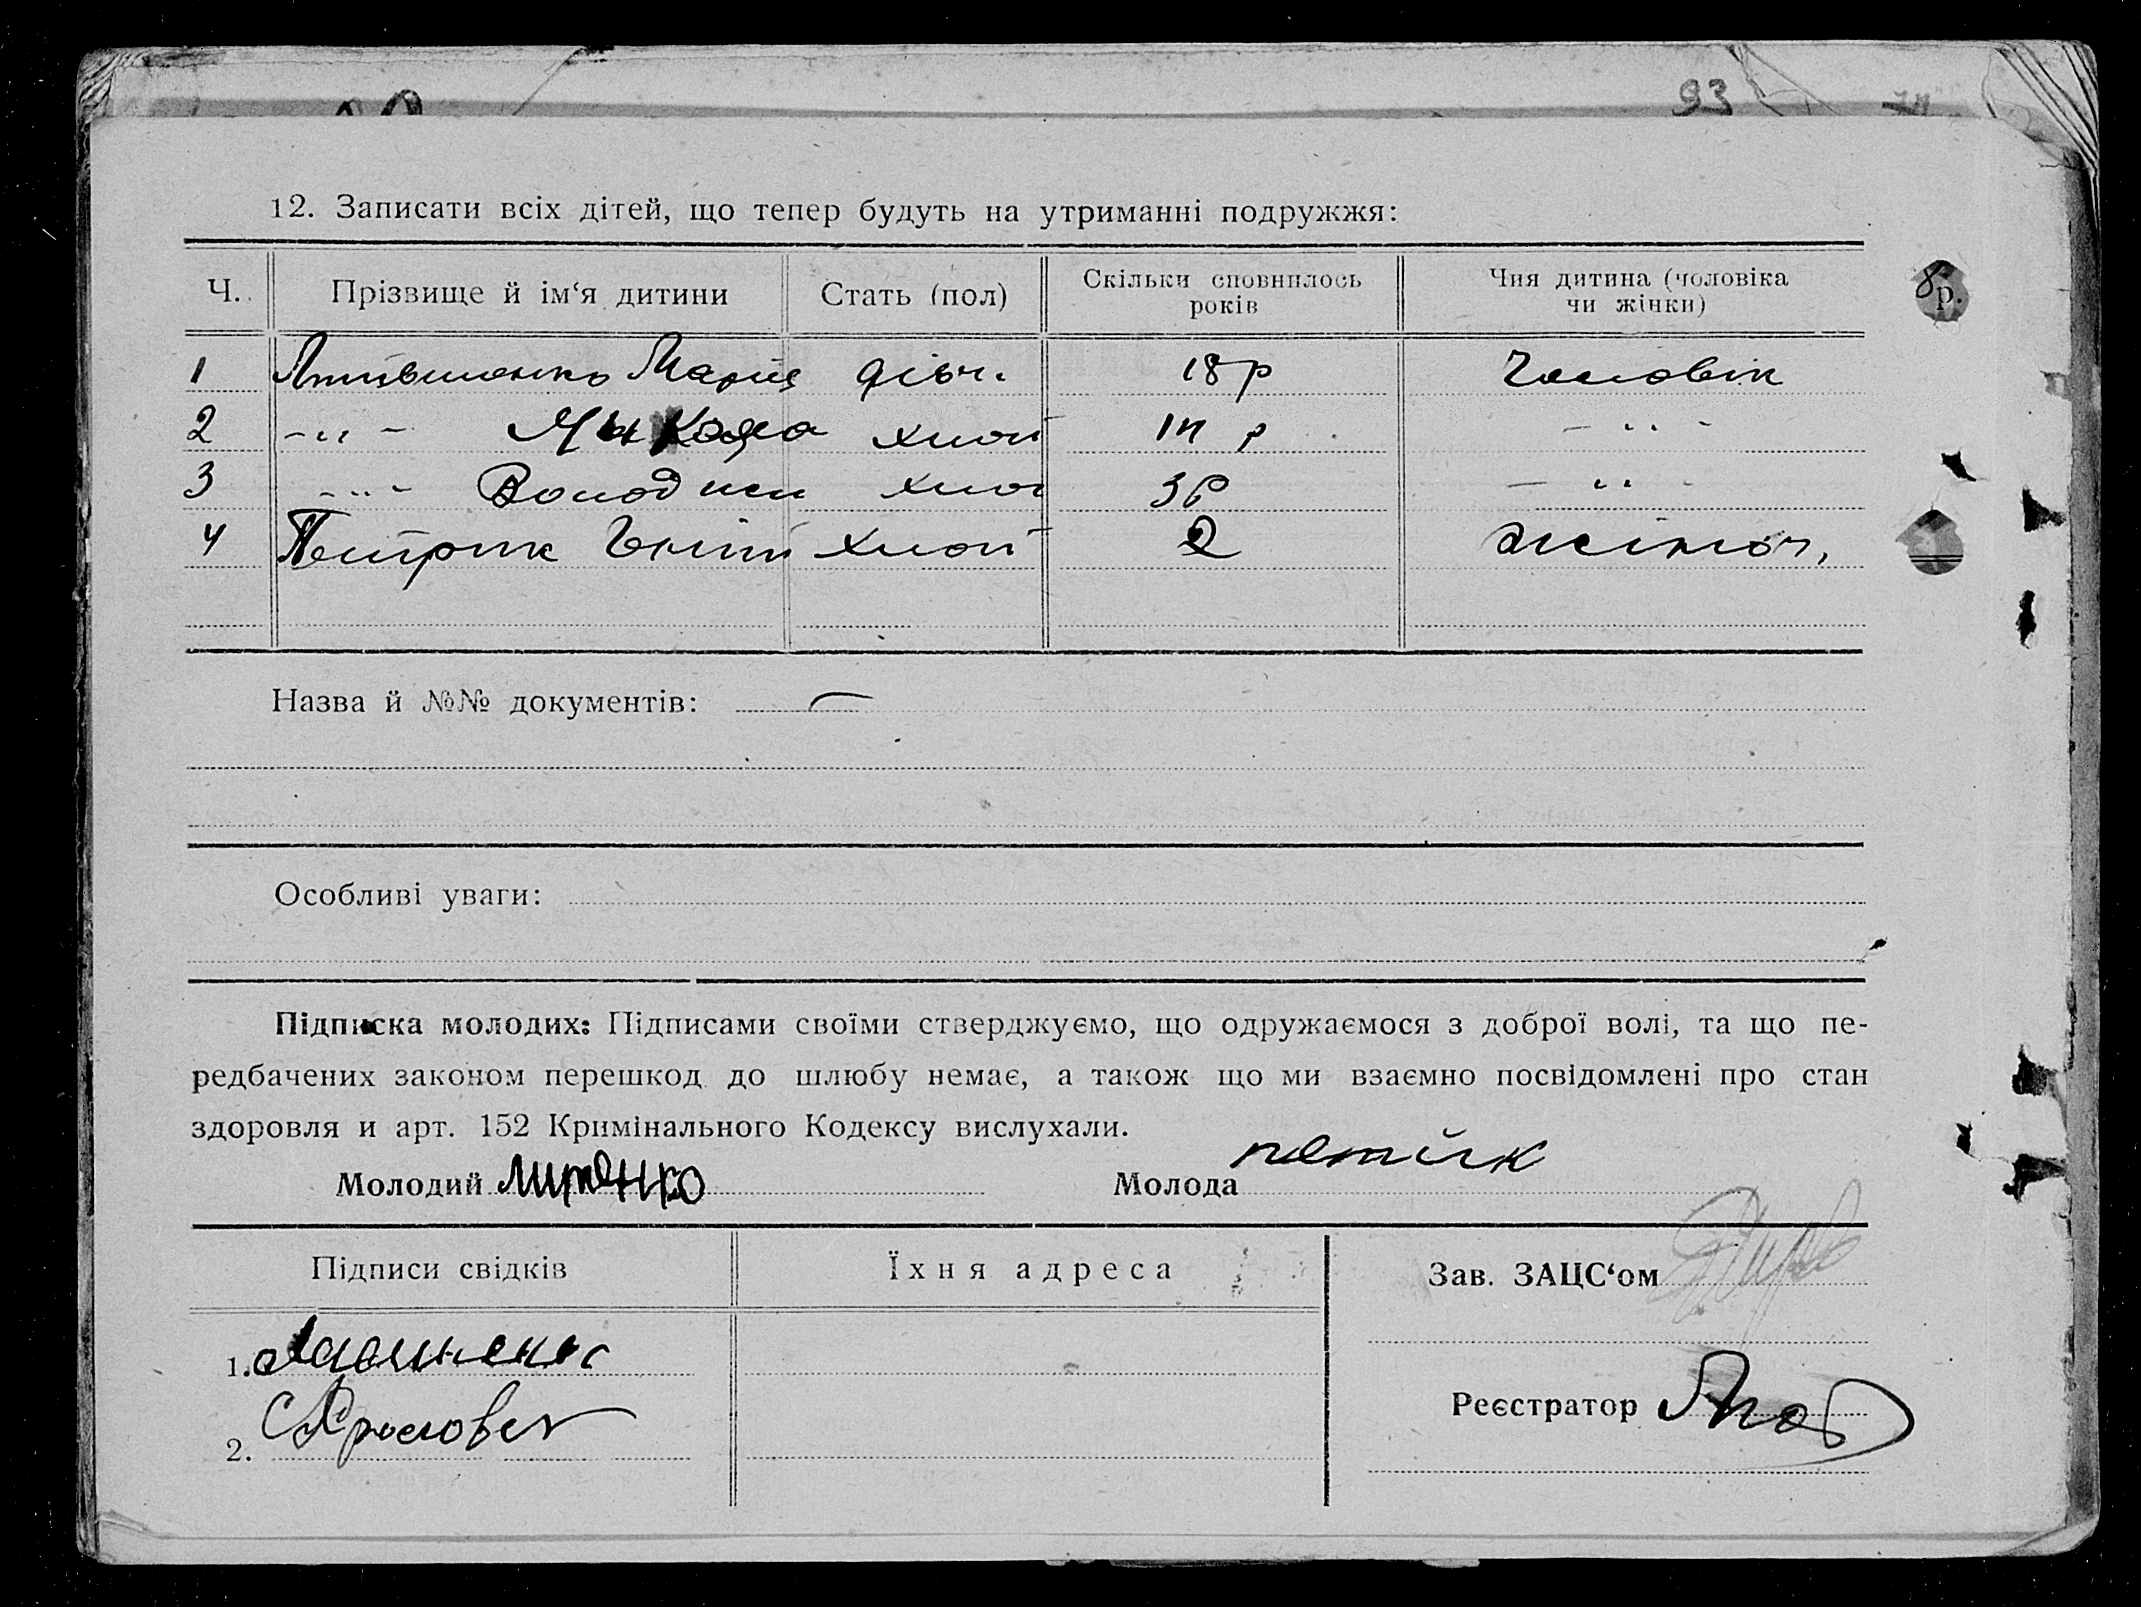 93
12. Записати всіх дітей, що тепер будуть на утриманні подружжя:
Ч. Прізвище й ім‘я дитини Стать (пол) Скільки сповнилось років Чия дитина (чоловіка чи жінки)
8р.
1 Марія дівч. 18 р Чоловік
2 -"- Мыкола хлоп р - " -
3 -"- Володим хлоп 3 р - " -
4 Петрик хлоп 2 жіноч.
Назва й №№ документів: —
Особливі уваги:
Підписка молодих: Підписами своїми стверджуємо, що одружаємося з доброї волі, та що пе-
редбачених законом перешкод до шлюбу немає, а також що ми взаємно посвідомлені про стан
здоровля и арт. 152 Кримінального Кодексу вислухали.
Молодий Молода
Підписи свідків Їхня адреса Зав. ЗАЦС‘ом
1.
Реєстратор
2.